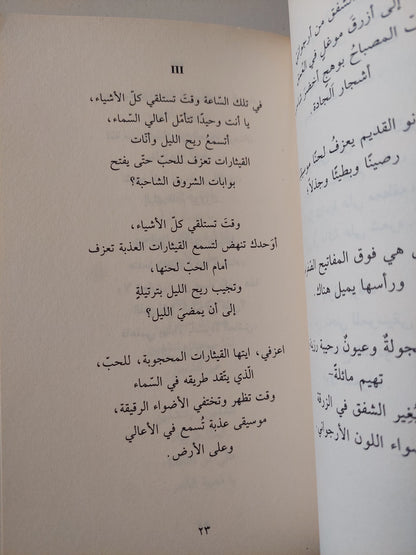 III
في تلك السّاعة وقتَ تستلقي كلّ الأشياء،
يا أنت وحيدًا تتأمّل أعالي السّماء،
أتسمعُ ريح الليل وأنّات
القيثارات تعزف للحبّ حتّى يفتح
بوابات الشروق الشاحبة؟
وقتَ تستلقي كلّ الأشياء،
أوَحدك تنهض لتسمع القيثارات العذبة تعزف
أمام الحبّ لحنها،
وتجيب ريح الليل بترتيلةٍ
إلى أن يمضيَ الليل؟
اعزفي، ايتها القيثارات المحجوبة، للحبّ،
الّذي يتّقد طريقه في السّماء
وقت تظهر وتختفي الأضواء الرقيقة،
موسيقى عذبة تُسمع في الأعالي
وعلى الأرض.
٢٣
الشفق من أرجواني
إلى أزرقَ موغلٍ في
المصباحُ بوهج أخضر
أشجار الجادة.
نو القديم يعزفُ لحنًا
رصينًا وبطيئًا وجذلاً؛
هي فوق المفاتيح
ورأسها يميل هناك.
خجولةٌ وعيونٌ رحبة
تهيم مائلةً-
الشفق في الزرقة
اللون الأرجواني